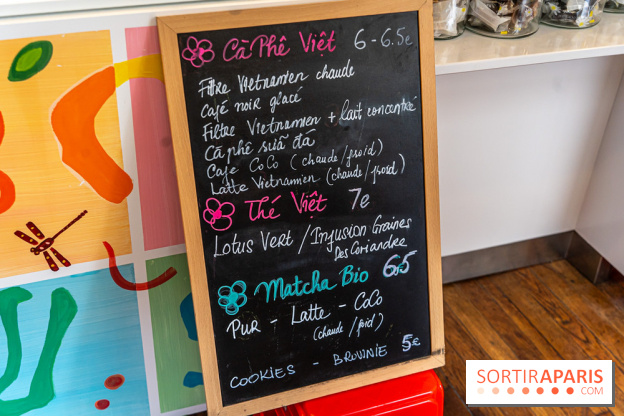 Cà Phê Việt 6 - 6.5e
Filtre Vietnamien chaude
Café noir glacé
Filtre Vietnamien + lait concentré
Cà phê sữa đá
Cafe CoCo (chaude/froid)
Latte Vietnamien (chaude/froid)
Thé Việt 7e
Lotus Vert / Infusion Graines
Des Coriandre
Matcha Bio 6.5
PUR - Latte - CoCo
(chaude/froid)
COOKIES - BROWNIE 5€
SORTIRAPARIS
.COM